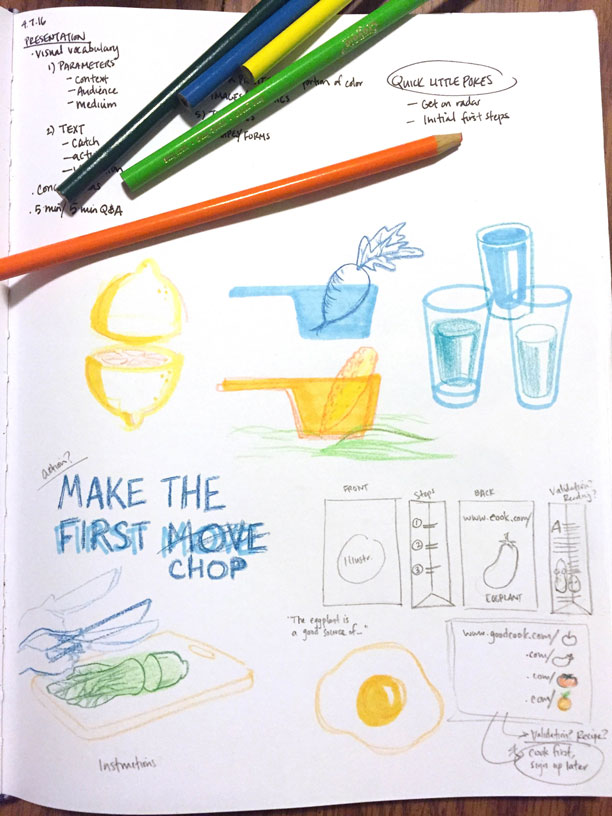 4.7.16
PRESENTATION
· Visual vocabulary
1) PARAMETERS
- Context
- Audience
- Medium
2) TEXT
- Catch
5 min/ 5 min Q&A
portion of color
IMAGES
5)
/FORMS
QUICK LITTLE POKES
- Get on radar
- Initial first steps
action?
MAKE THE
FIRST MOVE
CHOP
Instructions
FRONT
Illustr.
Steps
1
2
3
BACK
www.cook.com/
EGGPLANT
Validation?
Reading?
A
"The eggplant is
a good source of..."
www.goodcook.com/
.com/
.com/
.com/
Validation? Recipe?
Cook first,
sign up later